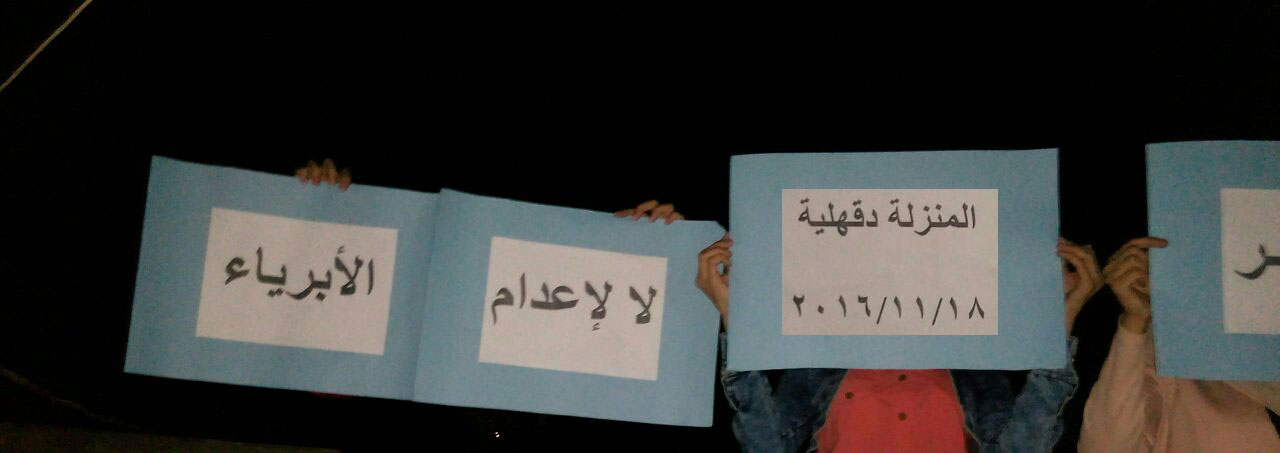 لا لإعدام
الأبرياء
المنزلة دقهلية
٢٠١٦/١١/١٨